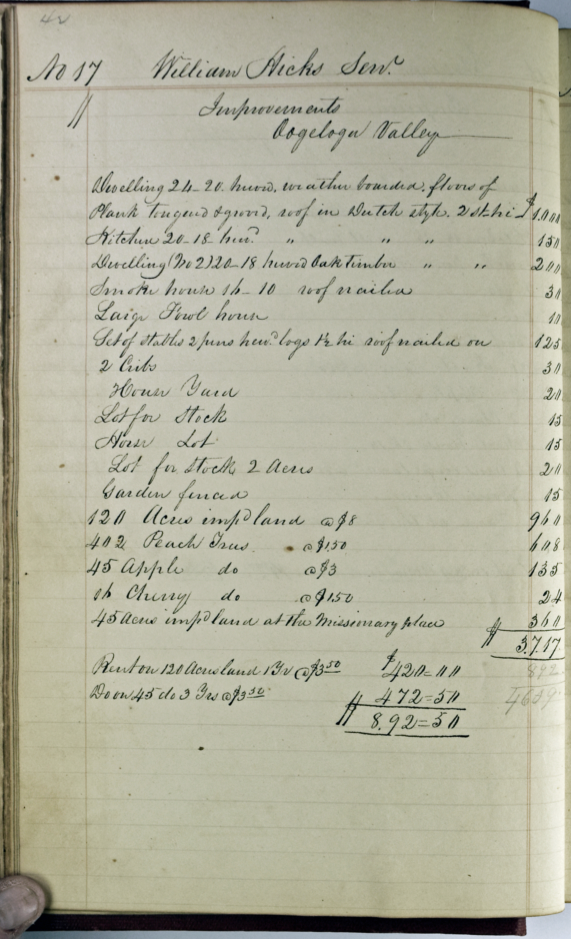 42
No 17 William Hicks Senr.
Improvements
Oogeloga Valley
Dwelling 24-20 hewd. weather boarded, floors of
Plank tongend & grovd, roof in Dutch style. 2 st. hi $1.000
Kitchen 20-18 hewd " " " 150
Dwelling (No 2) 20-18 hewed Oak timber " " 200
Smoke house 16-10 roof nailed 30
Large Fowl house 10
Set of stables 2 pens hewd logs 1½ hi roof nailed on 125
2 Cribs 30
House Yard 20
Lot for Stock 15
Horse Lot 15
Lot for stock 2 Acres 20
Garden fenced 15
120 Acres impd land @ $8 960
402 Peach Trees @ $1.50 608
45 Apple do @ $3 135
16 Cherry do @ $1.50 24
45 Acres impd land at the Missionary place 360
$ 3.717
Rent on 120 Acres land 1 Yr @ $3.50 $420=00 892
Do on 45 do 3 Yrs @ $3.50 472=50 4609
$ 8.92=50